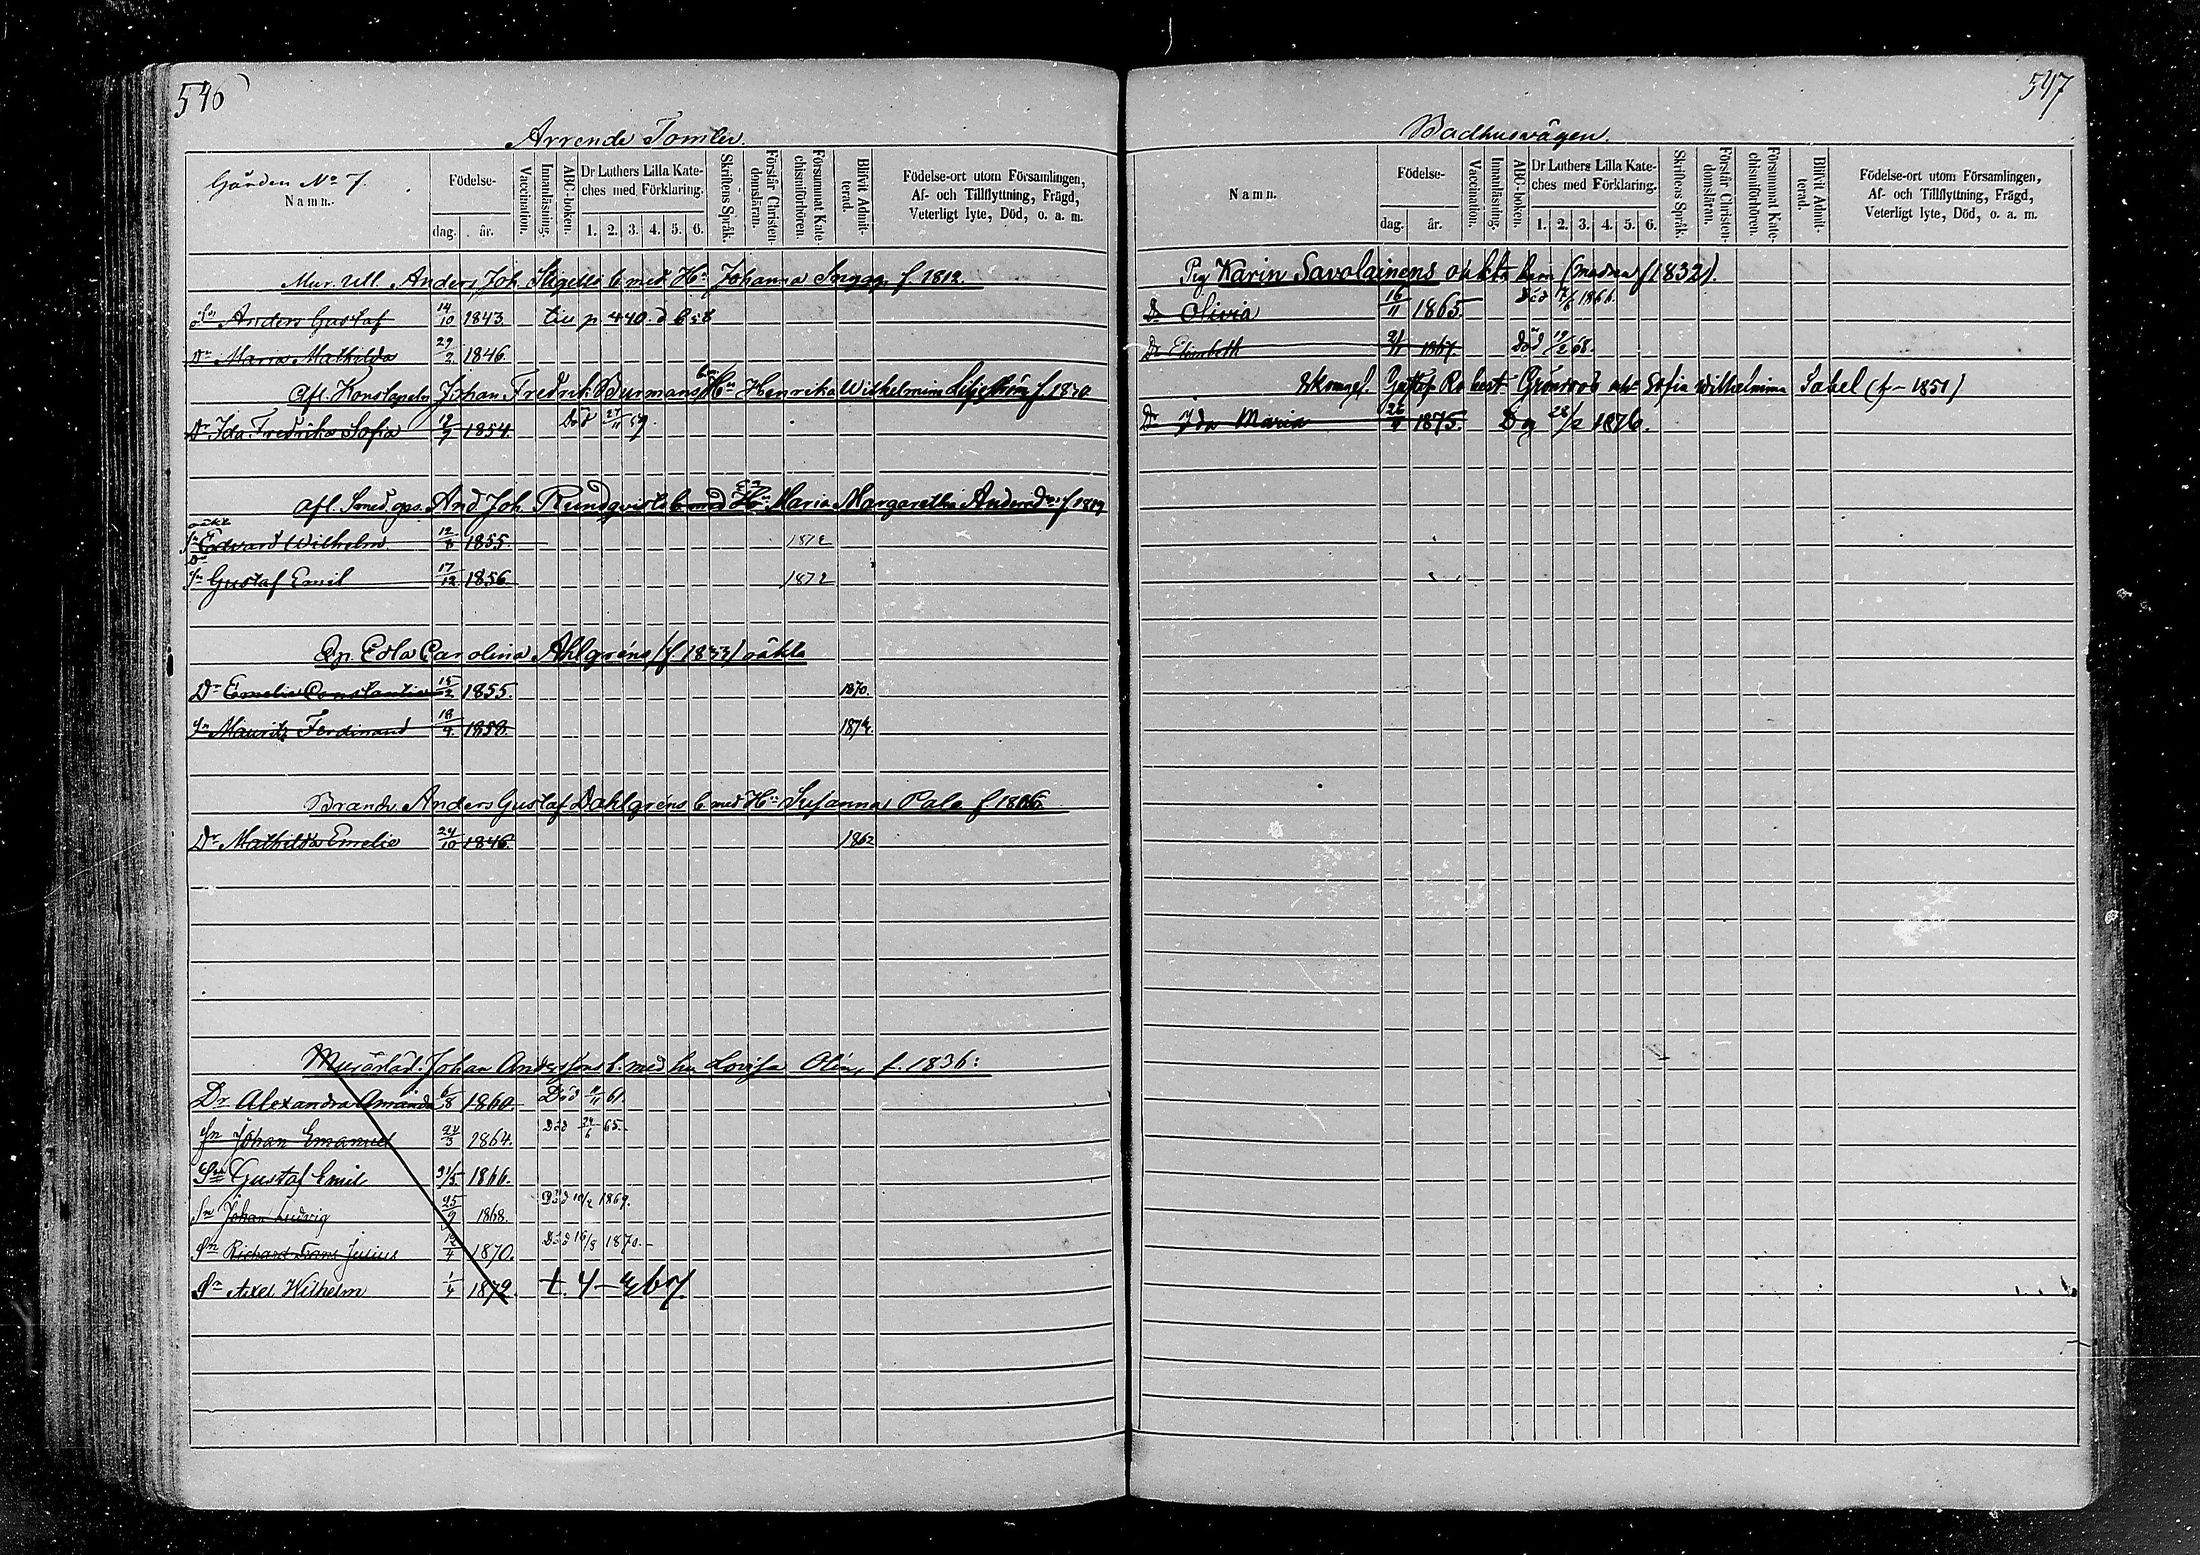 546
Arrende Tomter.
Gården No 7.
Namn.
Födelse-
dag. år.
Vaccination.
Innanläsning.
ABC-boken.
Dr Luthers Lilla Kate-
ches med Förklaring.
1. 2. 3. 4. 5. 6.
Skriftens Språk.
Förstår Christen-
domsläran.
Försummat Kate-
chismiförhören.
Blifvit Admit-
terad.
Födelse-ort utom Församlingen,
Af- och Tillflyttning, Frägd,
Veterligt lyte, Död, o. a. m.
Mur. Ull. Anders Joh. b med Hu Johanna f. 1812.
Sn Anders Gustaf 14/10 1843. p 440. d b 58
Dr Maria Mathilda 29/2 1846.
Afl. Konstapeln Johan Fredrik Burmans bn Hu Henrika Wilhelmina f. 1820
Dr Ida Fredrika Sofia 1854. Död 27/11 59.
Afl. Smed. And Joh. Rundqvists b med Hu Maria Margaretha Andersdr f 1819
oäkt
Sn Edvard Wilhelm 12/8 1855. 1872
Dr
Sn Gustaf Emil 17/12 1856 1872
Qp. Edla Carolina Ahlgréns (f 1833) oäkta
Dr Emelie Constantia 15/2 1855. 1870.
Sn Mauritz Ferdinand 18/9 1858. 1874.
Brandv. Anders Gustaf Dahlgréns b med Hu Susanna Pale f
Dr Mathilda Emelie 24/10 1846. 1862
Johan Anderssons b. med hu Lovisa Olin, f. 1836:
Dr Alexandra Amanda 6/8 1860. Död 11/11 61.
Sn Johan Emanuel 24/3 1864. Död 24/6 65.
Sn Gustaf Emil 21/5 1866.
Sn Johan Ludvig 25/9 1868. Död 10/2 1869.
Sn Richard Frans Julius 12/4 1870. Död 16/8 1870.
Sn Axel Wilhelm 1/4 1872. t. 4
547
Badhusvägen.
Namn.
Födelse-
dag. år.
Vaccination.
Innanläsning.
ABC-boken.
Dr Luthers Lilla Kate-
ches med Förklaring.
1. 2. 3. 4. 5. 6.
Skriftens Språk.
Förstår Christen-
domsläran.
Försummat Kate-
chismiförhören.
Blifvit Admit-
terad.
Födelse-ort utom Församlingen,
Af- och Tillflyttning, Frägd,
Veterligt lyte, Död, o. a. m.
Pig Karin Savolainens oäkta barn (modren f 1832).
Dr Olivia 16/11 1865. Död 1866.
Dr Elisabeth 1867. Död 19/2 68.
Skomgs. Gustaf Robert Grönroos och Sofia Wilhelmina Sabel (f- 1851)
Dr Ida Maria 1875. Dog 28/2 1876.